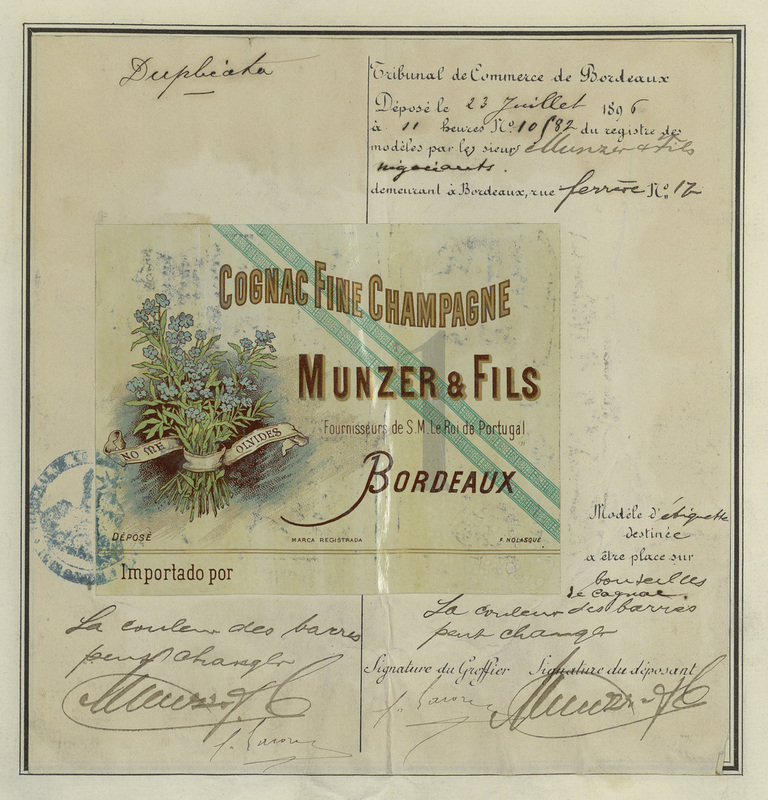 Duplicata
Tribunal de Commerce de Bordeaux
Déposé le 23 Juillet 1896
à 11 heures No. 10582 du registre des
modèles par les sieurs Munzer & Fils
négociants.
demeurant à Bordeaux, rue Ferrère No. 12
COGNAC FINE CHAMPAGNE
MUNZER & FILS
Fournisseurs de S.M. Le Roi de Portugal
BORDEAUX
NO ME OLVIDES
DÉPOSÉ
MARCA REGISTRADA
F. NOLASQUE
Importado por
Modèle d'étiquette
destinée
a être place sur
bouteilles
de cognac.
La couleur des barres
peut changer
La couleur des barres
peut changer
Signature du Greffier Signature du déposant